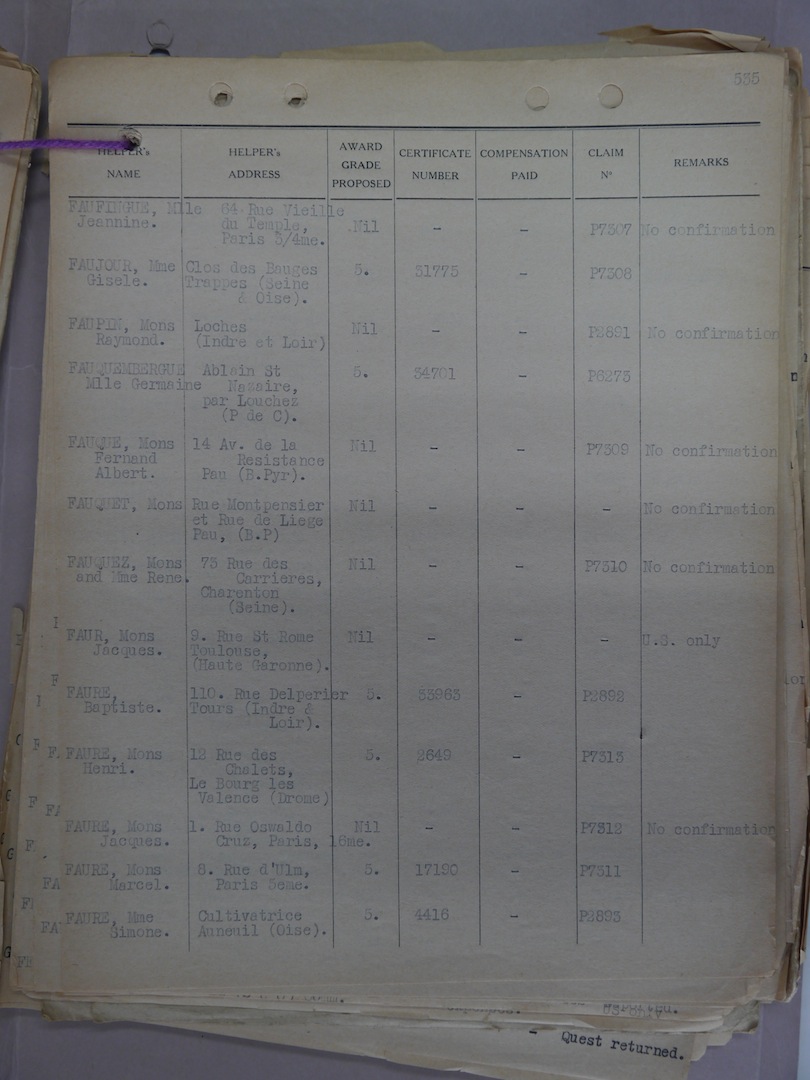 535
HELPER's NAME HELPER's ADDRESS AWARD GRADE PROPOSED CERTIFICATE NUMBER COMPENSATION PAID CLAIM N° REMARKS
FAUFINGUE, Mlle 64 Rue Vieille
Jeannine. du Temple, Nil - - P7307 No confirmation
Paris 3/4me.
FAUJOUR, Mme Clos des Bauges 5. 31775 - P7308
Gisele. Trappes (Seine
& Oise).
FAUPIN, Mons Loches Nil - - P2891 No confirmation
Raymond. (Indre et Loir)
FAUQUEMBERGUE Ablain St 5. 34701 - P6273
Mlle Germaine Nazaire,
par Louchez
(P de C).
FAUQUE, Mons 14 Av. de la Nil - - P7309 No confirmation
Fernand Resistance
Albert. Pau (B.Pyr).
FAUQUET, Mons Rue Montpensier Nil - - - No confirmation
et Rue de Liege
Pau, (B.P)
FAUQUEZ, Mons 73 Rue des Nil - - P7310 No confirmation
and Mme Rene. Carrieres,
Charenton
(Seine).
FAUR, Mons 9. Rue St Rome Nil - - - U.S. only
Jacques. Toulouse,
(Haute Garonne).
FAURE, 110. Rue Delperier 5. 33963 - P2892
Baptiste. Tours (Indre &
Loir).
FAURE, Mons 12 Rue des 5. 2649 - P7313
Henri. Chalets,
Le Bourg les
Valence (Drome)
FAURE, Mons 1. Rue Oswaldo Nil - - P7312 No confirmation
Jacques. Cruz, Paris, 16me.
FAURE, Mons 8. Rue d'Ulm, 5. 17190 - P7311
Marcel. Paris 5eme.
FAURE, Mme Cultivatrice 5. 4416 - P2893
Simone. Auneuil (Oise).
- Quest returned.